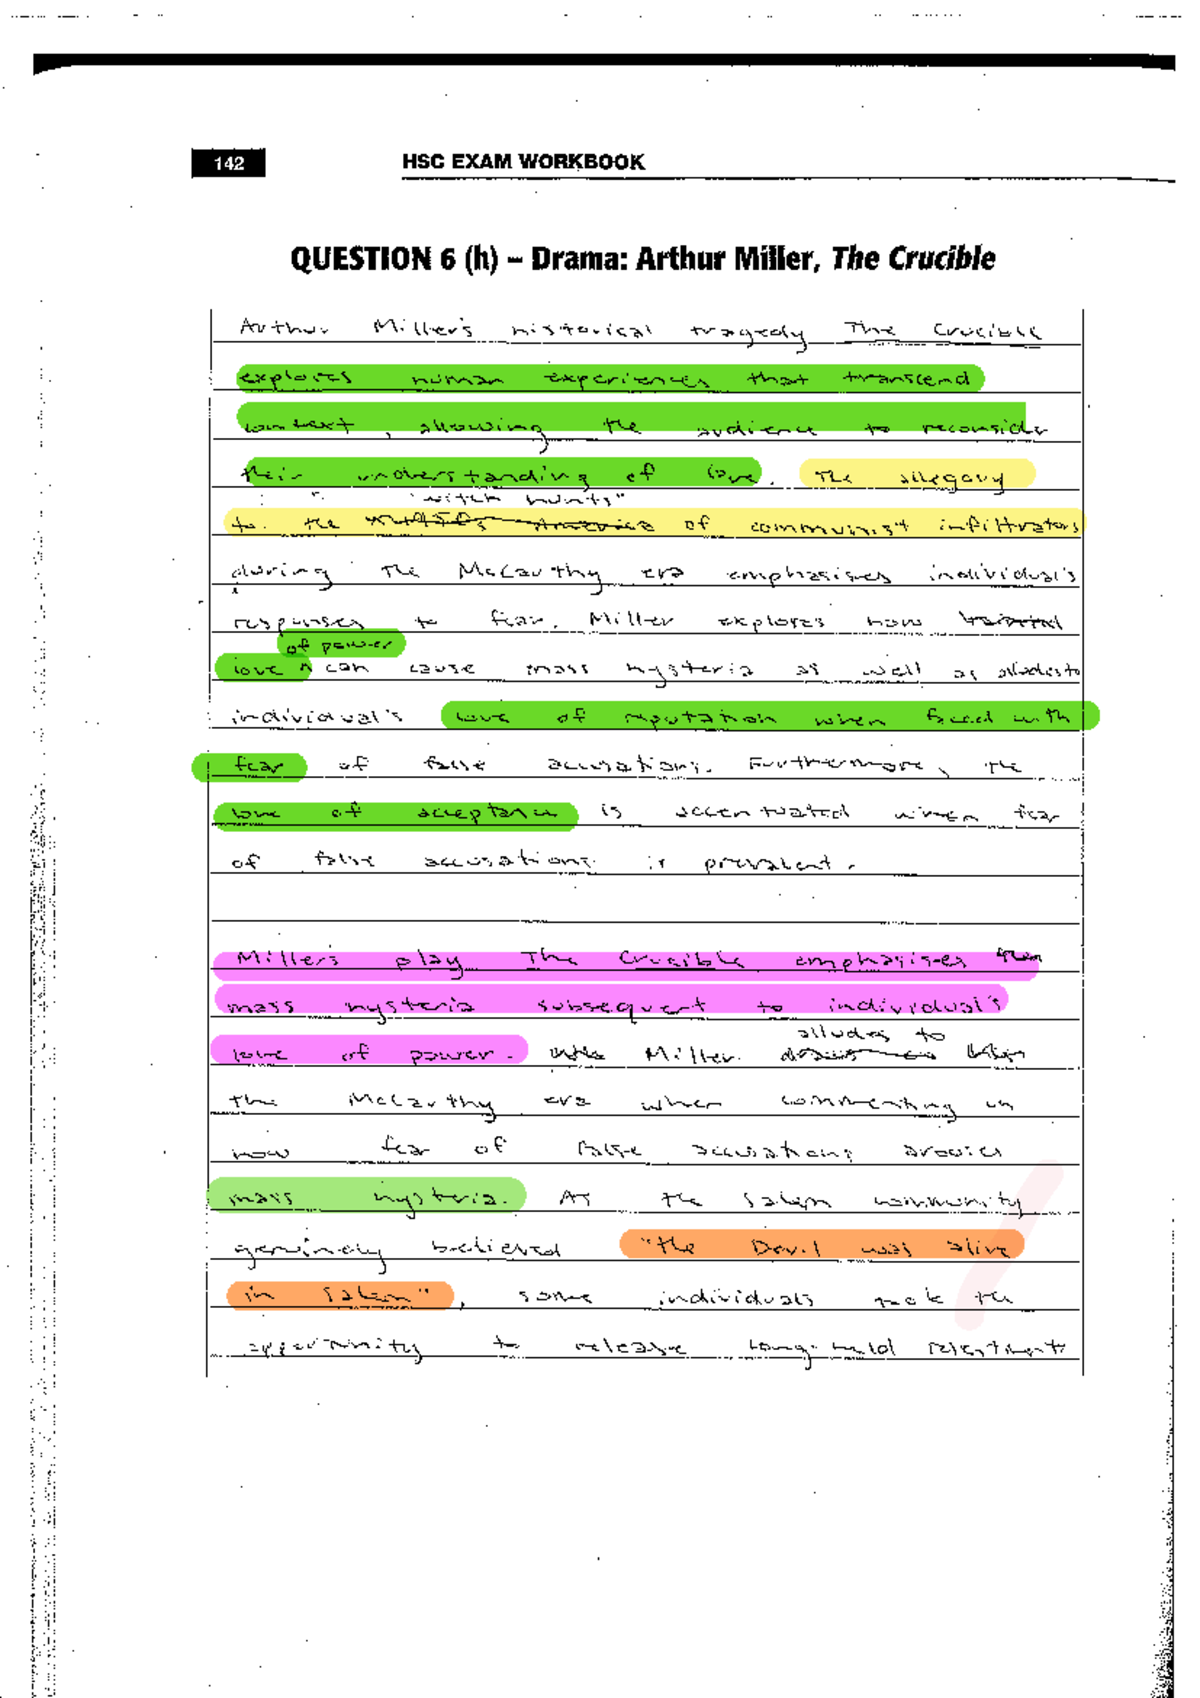 142
HSC EXAM WORKBOOK
QUESTION 6 (h) – Drama: Arthur Miller, The Crucible
Arthur Miller's historical tragedy The Crucible
explores human experiences that transcend
context, allowing the audience to reconsider
their understanding of love. The allegory
"witch hunts"
to the of communist infiltrators
during the McCarthy era emphasises individual's
responses to fear. Miller explores how
of power
love can cause mass hysteria as well as alludes to
individual's love of reputation when faced with
fear of false accusations. Furthermore, the
love of acceptance is accentuated when fear
of false accusations is prevalent.
Miller's play The Crucible emphasises the
mass hysteria subsequent to individual's
alludes to
love of power. Miller
the McCarthy era when commenting on
how fear of false accusations arouses
mass hysteria. As the Salem community
genuinely believed "the Devil was alive
in Salem", some individuals took the
opportunity to release long-held resentment